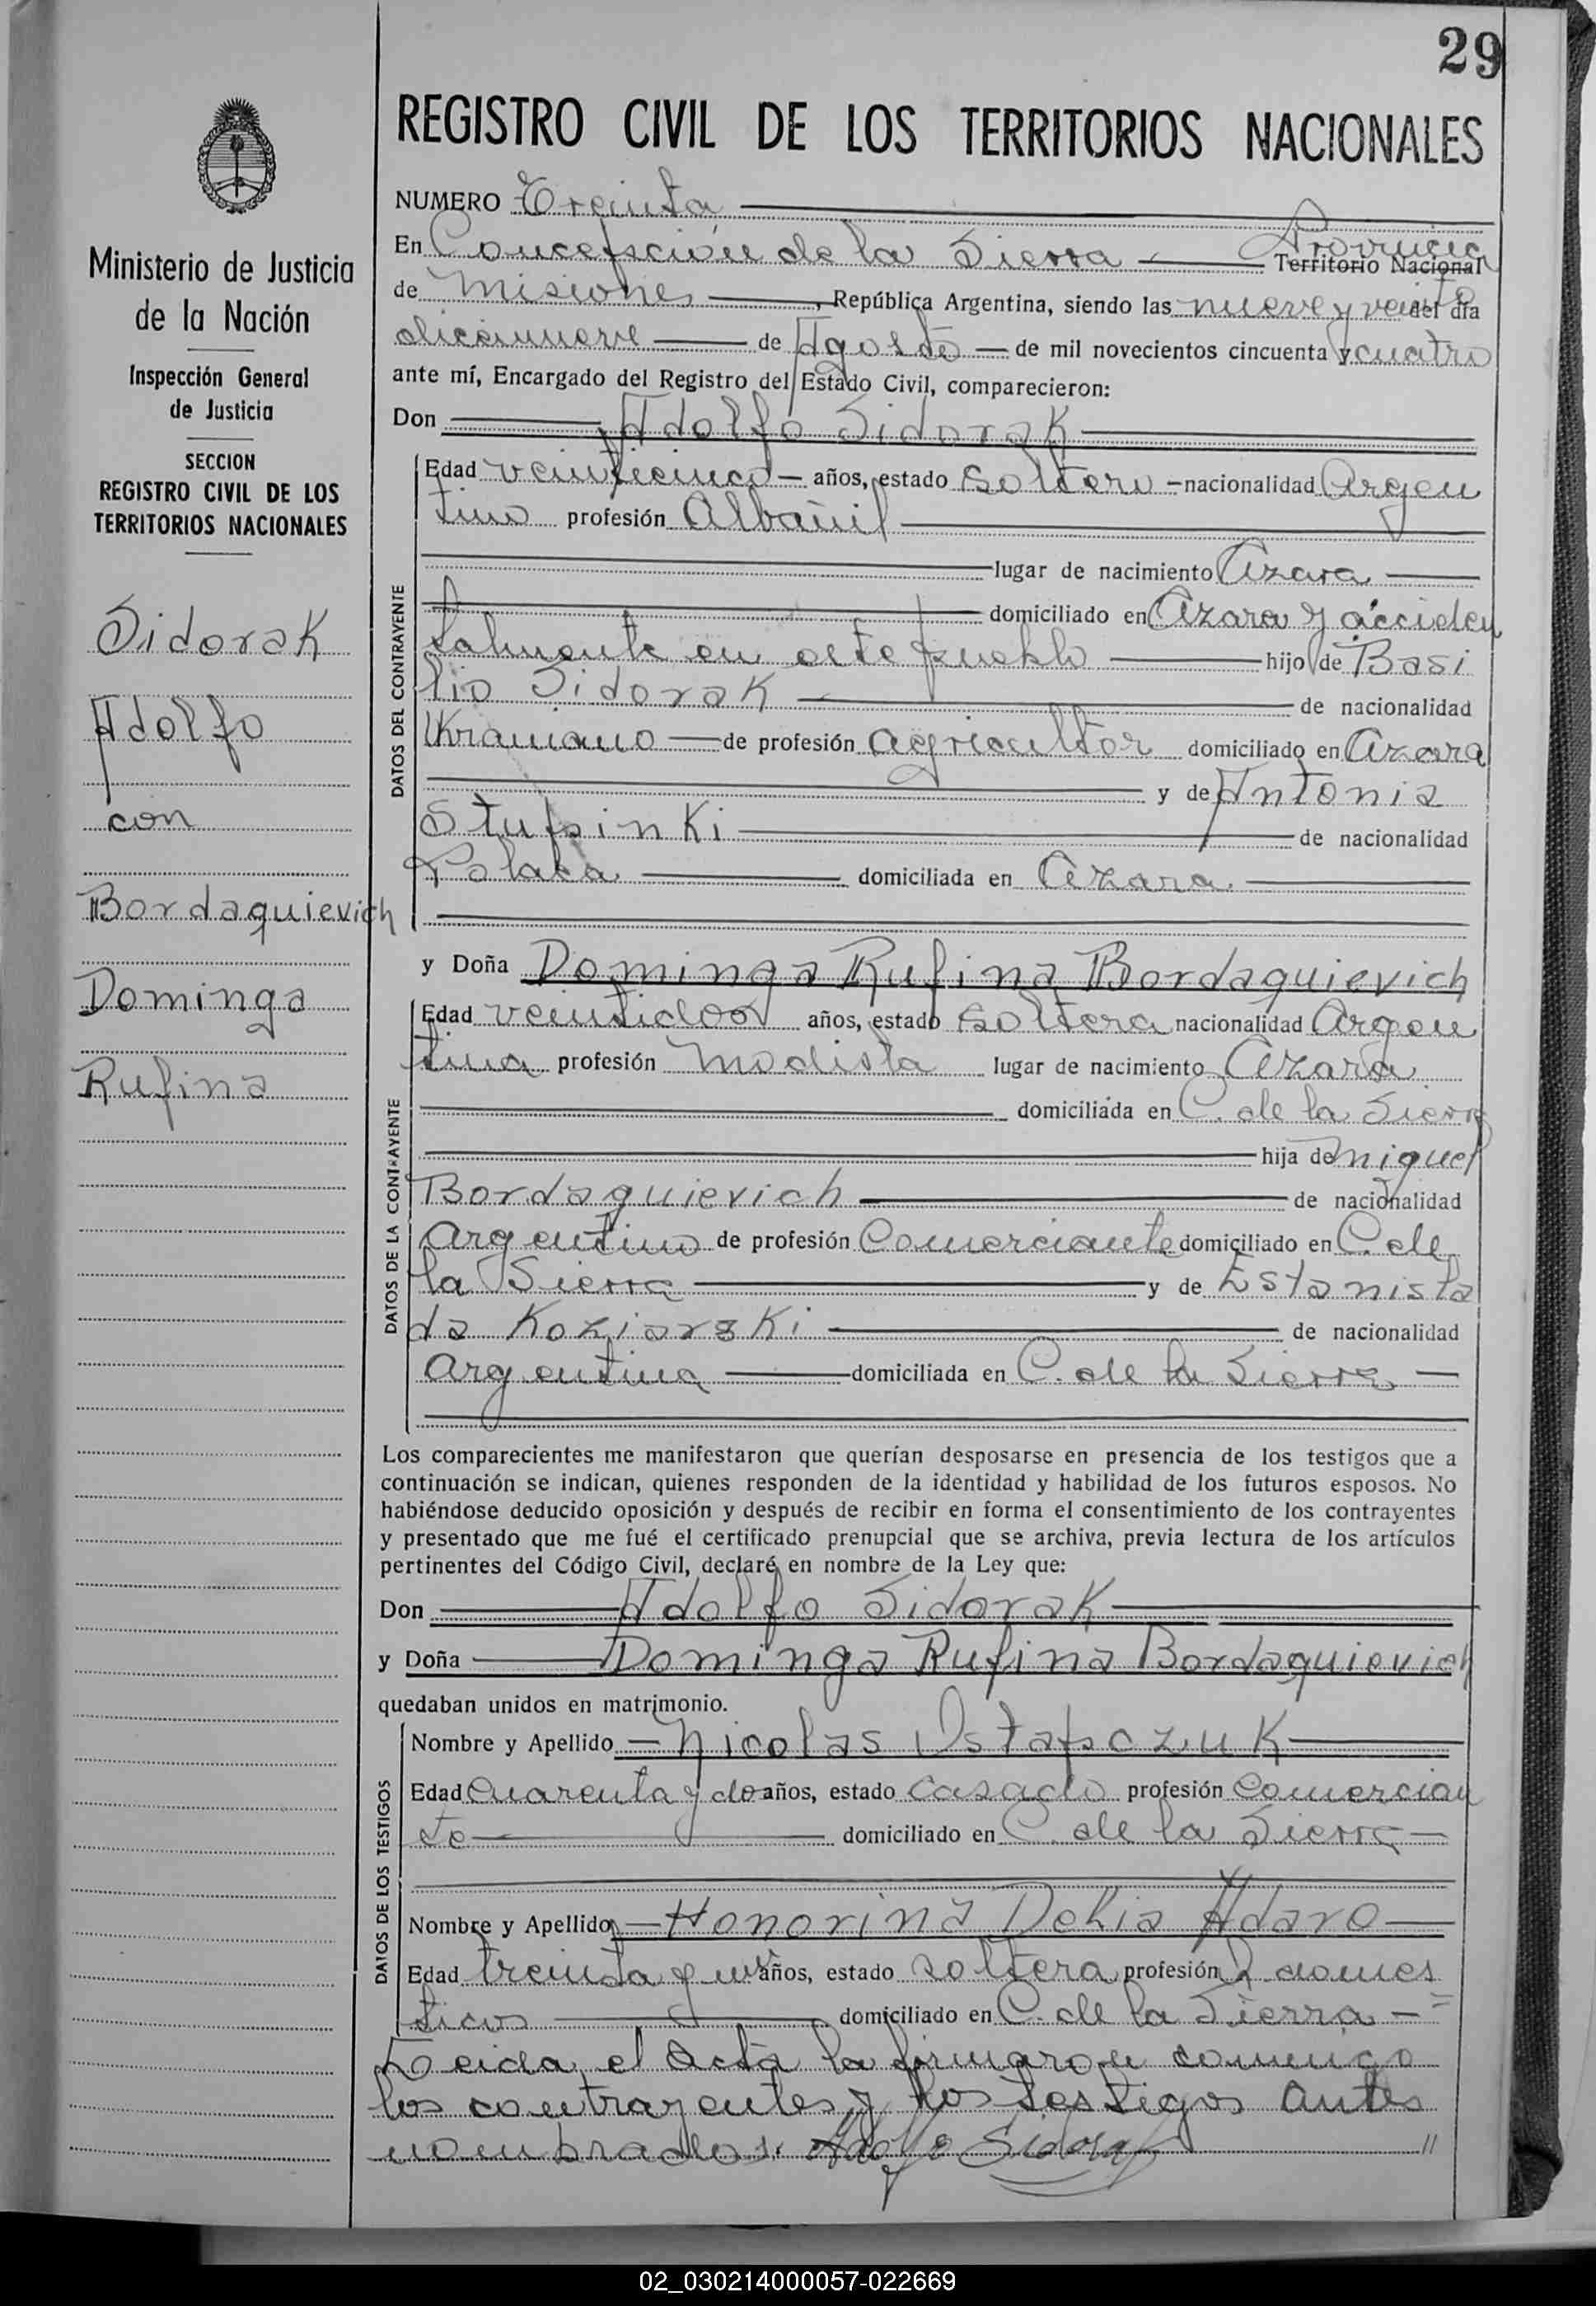 29
REGISTRO CIVIL DE LOS TERRITORIOS NACIONALES
Ministerio de Justicia
de la Nación
Inspección General
de Justicia
SECCION
REGISTRO CIVIL DE LOS
TERRITORIOS NACIONALES
Sidorak
Adolfo
con
Bordaquievich
Dominga
Rufina
NUMERO Treinta
En Concepción de la Sierra Provincia Territorio Nacional
de Misiones, República Argentina, siendo las nueve y veinte del día
diecinueve de Agosto de mil novecientos cincuenta y cuatro
ante mí, Encargado del Registro del Estado Civil, comparecieron:
Don Adolfo Sidorak
DATOS DEL CONTRAYENTE
Edad veinticinco años, estado soltero nacionalidad Argen
tino profesión Albañil
lugar de nacimiento Azara
domiciliado en Azara y acciden
talmente en este pueblo hijo de Basi
lio Sidorak de nacionalidad
Ukraniano de profesión agricultor domiciliado en Azara
y de Antonia
Stupinki de nacionalidad
Polaka domiciliada en Azara
y Doña Dominga Rufina Bordaquievich
DATOS DE LA CONTRAYENTE
Edad veintidos años, estado soltera nacionalidad Argen
tina profesión Modista lugar de nacimiento Azara
domiciliada en C. de la Sierra
hija de Miguel
Bordaquievich de nacionalidad
argentino de profesión Comerciante domiciliado en C. de
la Sierra y de Estanisla
da Koziarski de nacionalidad
argentina domiciliada en C. de la Sierra
Los comparecientes me manifestaron que querían desposarse en presencia de los testigos que a
continuación se indican, quienes responden de la identidad y habilidad de los futuros esposos. No
habiéndose deducido oposición y después de recibir en forma el consentimiento de los contrayentes
y presentado que me fué el certificado prenupcial que se archiva, previa lectura de los artículos
pertinentes del Código Civil, declaré en nombre de la Ley que:
Don Adolfo Sidorak
y Doña Dominga Rufina Bordaquievich
quedaban unidos en matrimonio.
DATOS DE LOS TESTIGOS
Nombre y Apellido Nicolas Ostapczuk
Edad cuarenta y dos años, estado casado profesión comercian
te domiciliado en C. de la Sierra
Nombre y Apellido Honorina Delia Adaro
Edad treinta y un años, estado soltera profesión Q domes
ticos domiciliado en C. de la Sierra
Leida el acta la firmaron conmigo
los contrayentes y los testigos antes
nombrados. Adolfo Sidorak //
02_030214000057-022669